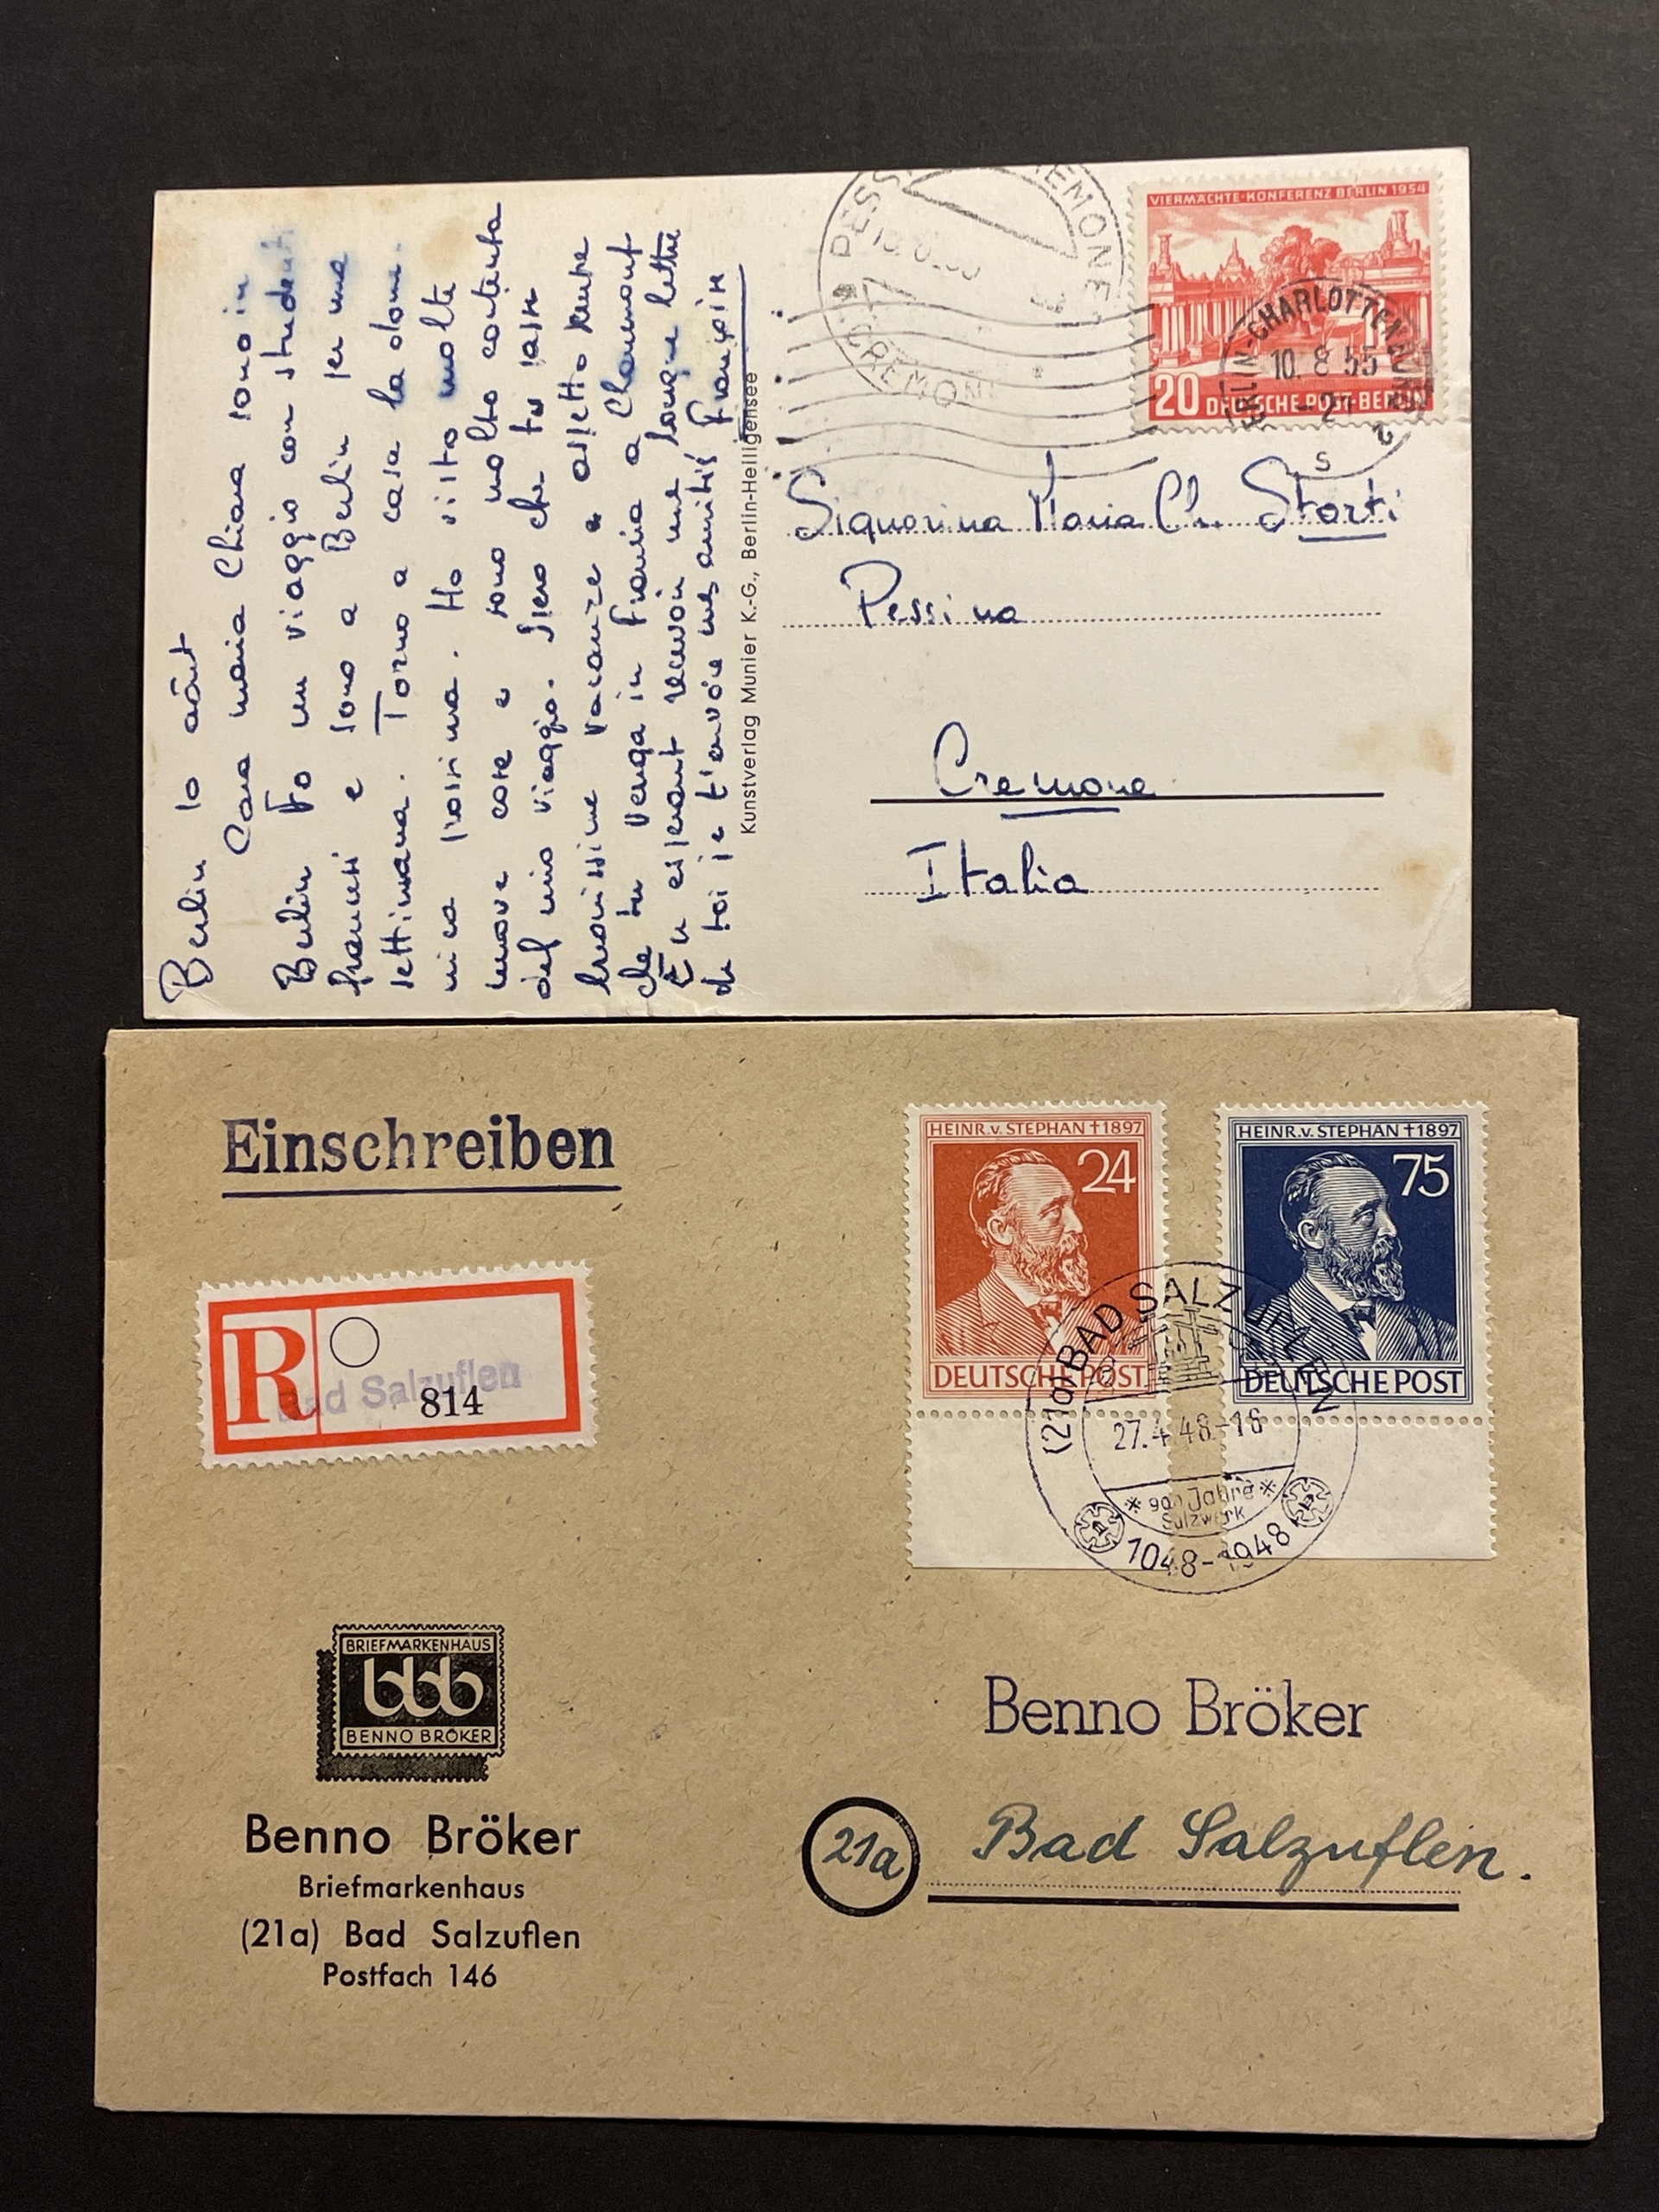 Berlin 10 août
Cara maria Chiara sono in
Berlin Fo un viaggio con studenti
francesi e sono a Berlin per una
settimana. Torno a casa la dom.
nica prossima. Ho visto molte
nuove cose e sono molto contenta
del mio viaggio. Spero che tu sais
buonissime vacanze e aspetto
che tu venga in Francia a Chaumont
en espérant recevoir une longue lettre
de toi je t'envoie mes amitiés
Kunstverlag Munier K.-G., Berlin-Heiligensee
PESS CREMONE
CREMON
VIERMÄCHTE-KONFERENZ BERLIN 1954
20 DEUTSCHE POST BERLIN
BERLIN-CHARLOTTENBURG 2
10. 8. 55
s
Signorina Maria Ch. Storti
Pessina
Cremone
Italia
Einschreiben
R
Bad Salzuflen
814
HEINR. v. STEPHAN † 1897
24
DEUTSCHE POST
HEINR. v. STEPHAN † 1897
75
DEUTSCHE POST
(21a) BAD SALZUFLEN
27.4.48.-18
* 900 Jahre *
Salzwerk
1048-1948
BRIEFMARKENHAUS
bbb
BENNO BRÖKER
Benno Bröker
Briefmarkenhaus
(21a) Bad Salzuflen
Postfach 146
Benno Bröker
21a Bad Salzuflen.